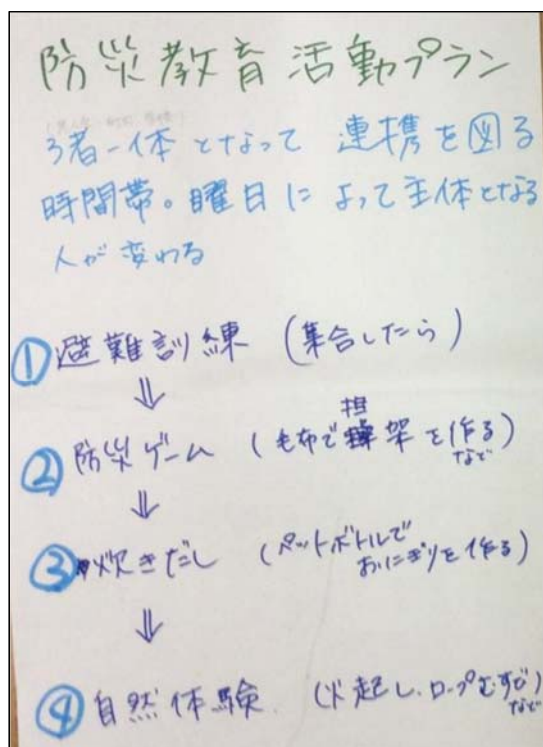 防災教育活動プラン
3者一体となって 連携を図る
時間帯。曜日によって主体となる
人が変わる
① 避難訓練 (集合したら)
⇓
② 防災ゲーム (毛布で担架を作るなど)
⇓
③ 炊きだし (ペットボトルで
おにぎりを作る)
⇓
④ 自然体験 (火起し、ロープむすびなど)